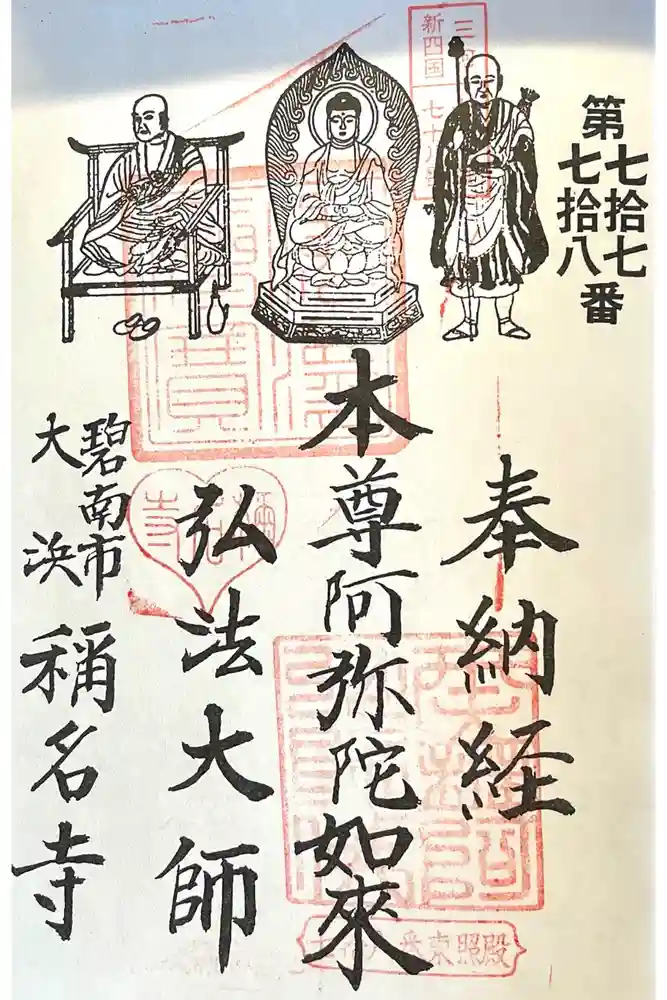 第七拾七
七拾八番
奉納経
本尊阿弥陀如來
弘法大師
碧南市
大浜
称名寺
新四国
東照殿